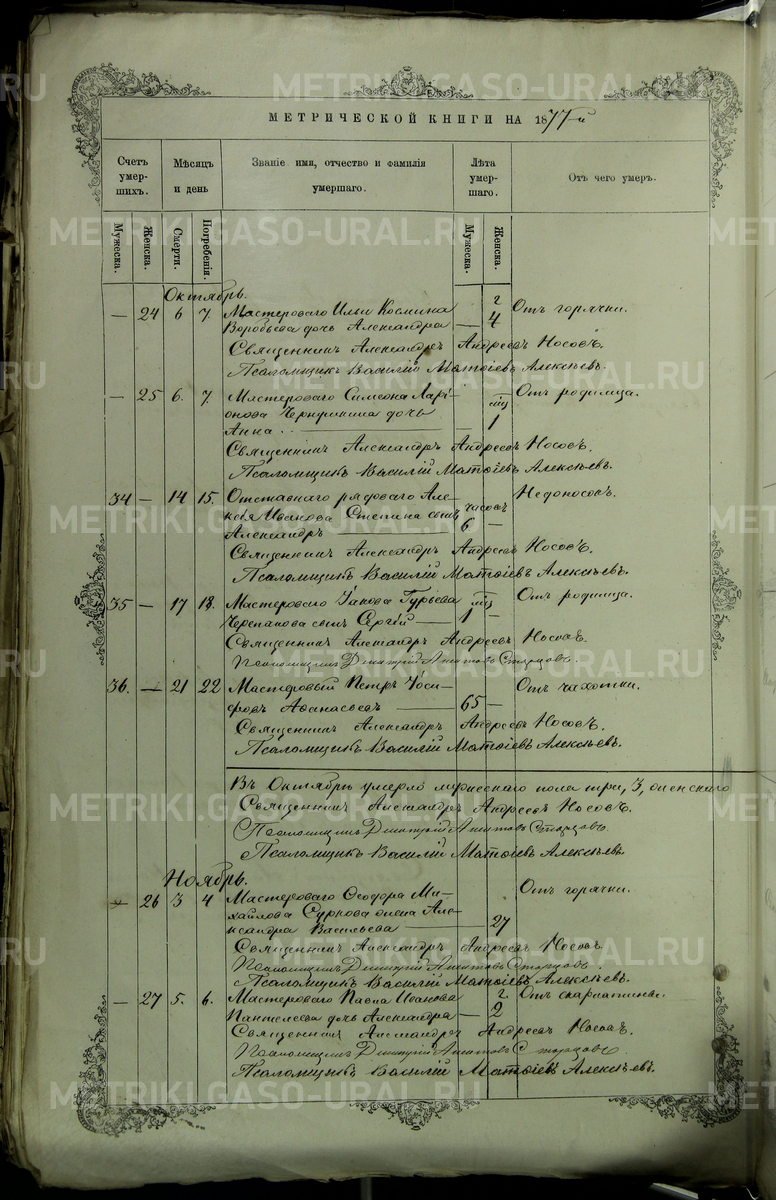 МЕТРИЧЕСКОЙ КНИГИ НА 1877-й
Счетъ умершихъ.
Мѣсяцъ и день
Званіе имя, отчество и фамилія умершаго.
Лѣта умершаго.
Отъ чего умеръ.
Мужеска.
Женска.
Смерти.
Погребенія.
Мужеска.
Женска.
Октябрь.
— 24 6 7. Мастероваго Ильи Космина г Отъ горячки.
Воробьева дочь Александра — 4
Священникъ Александръ Андреевъ Носовъ.
Псаломщикъ Василій Матѳіевъ Алексѣевъ.
— 25 6. 7. Мастероваго Симеона Ларі- мц Отъ родимца.
онова дочь 1
Анна . . —
Священникъ Александръ Андреевъ Носовъ.
Псаломщикъ Василій Матѳіевъ Алексѣевъ.
34 — 14 15. Отставнаго рядоваго Але- часовъ Недоносокъ.
ксія Иванова Степина сынъ 6 —
Александръ —
Священникъ Александръ Андреевъ Носовъ.
Псаломщикъ Василій Матѳіевъ Алексѣевъ.
35 — 17 18. Мастероваго Іакова Гурьева мц Отъ родимца.
Черепанова сынъ Сергій — 1 —
Священникъ Александръ Андреевъ Носовъ.
Псаломщикъ Димитрій Старцовъ.
36. — 21 22 Мастеровый Петръ Іоси- Отъ чахотки.
фовъ Аѳанасьевъ — 65 —
Священникъ Александръ Андреевъ Носовъ.
Псаломщикъ Василій Матѳіевъ Алексѣевъ.
Въ Октябрѣ умерло мужескаго пола три, 3, женскаго
Священникъ Александръ Андреевъ Носовъ.
Псаломщикъ Димитрій Старцовъ
Псаломщикъ Василій Матѳіевъ Алексѣевъ.
Ноябрь.
— 26 3 4 Мастероваго Ѳеодора Ми- Отъ горячки.
хайлова Суркова жена Але-
ксандра Васильева — 27
Священникъ Александръ Андреевъ Носовъ.
Псаломщикъ Димитрій Старцовъ.
Псаломщикъ Василій Матѳіевъ Алексѣевъ.
— 27 5. 6. Мастероваго Павла Иванова г. Отъ скарлатины.
Пантелеева дочь Александра — 2
Священникъ Александръ Андреевъ Носовъ.
Псаломщикъ Димитрій Старцовъ.
Псаломщикъ Василій Матѳіевъ Алексѣевъ.
METRIKI.GASO-URAL.RU